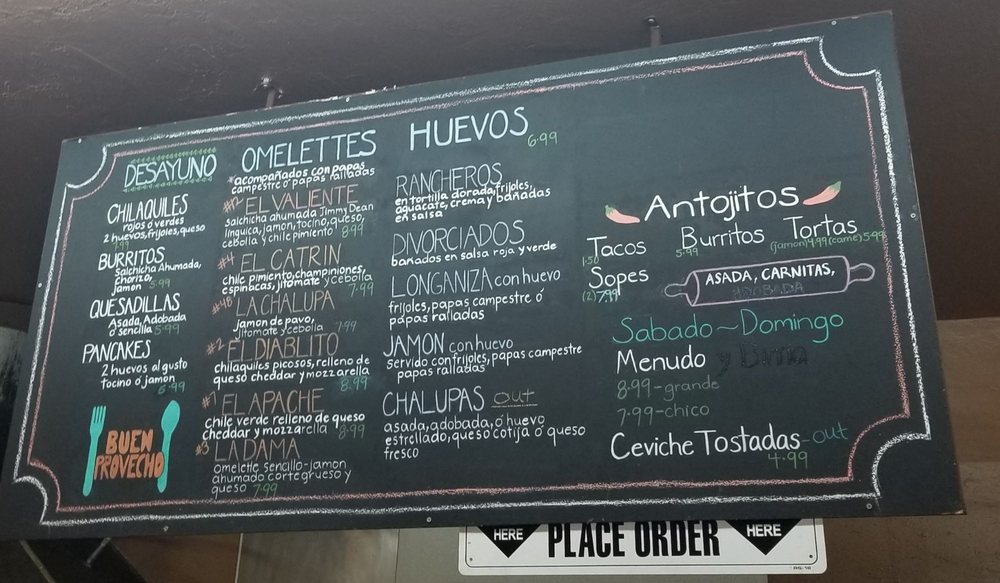 DESAYUNO
CHILAQUILES
rojos ó verdes
2 huevos, frijoles, queso
7.99
BURRITOS
Salchicha Ahumada,
chorizo,
jamon 5.99
QUESADILLAS
Asada, Adobada
ó sencilla 5.99
PANCAKES
2 huevos al gusto
tocino ó jamon
6.99
BUEN
PROVECHO
OMELETTES
*acompañados con papas
campestre ó papas ralladas
EL VALIENTE
salchicha ahumada Jimmy Dean
linguica, jamon, tocino, queso,
cebolla y chile pimiento 8.99
#4 EL CATRIN
chile pimiento, champiniones,
espinacas, jitomate y cebolla
7.99
#48 LA CHALUPA
jamon de pavo,
jitomate y cebolla 7.99
#2 EL DIABLITO
chilaquiles picosos, relleno de
queso cheddar y mozzarella
8.99
#1 EL APACHE
chile verde relleno de queso
cheddar y mozzarella 8.99
#3 LA DAMA
omelette sencillo-jamon
ahumado corte grueso y
queso 7.99
HUEVOS
6.99
RANCHEROS
en tortilla dorada, frijoles,
aguacate, crema y bañadas
en salsa
DIVORCIADOS
bañados en salsa roja y verde
LONGANIZA con huevo
frijoles, papas campestre ó
papas ralladas
JAMON con huevo
servido con frijoles, papas campestre
papas ralladas
CHALUPAS out
asada, adobada, ó huevo
estrellado, queso cotija ó queso
fresco
Antojitos
Tacos Burritos Tortas
1.50 5.99 (jamon) 4.99 (carne) 5.99
Sopes
(2) 7.99
ASADA, CARNITAS,
ADOBADA
Sabado~Domingo
Menudo y Birria
8.99-grande
7.99-chico
Ceviche Tostadas-out
4.99
HERE PLACE ORDER HERE